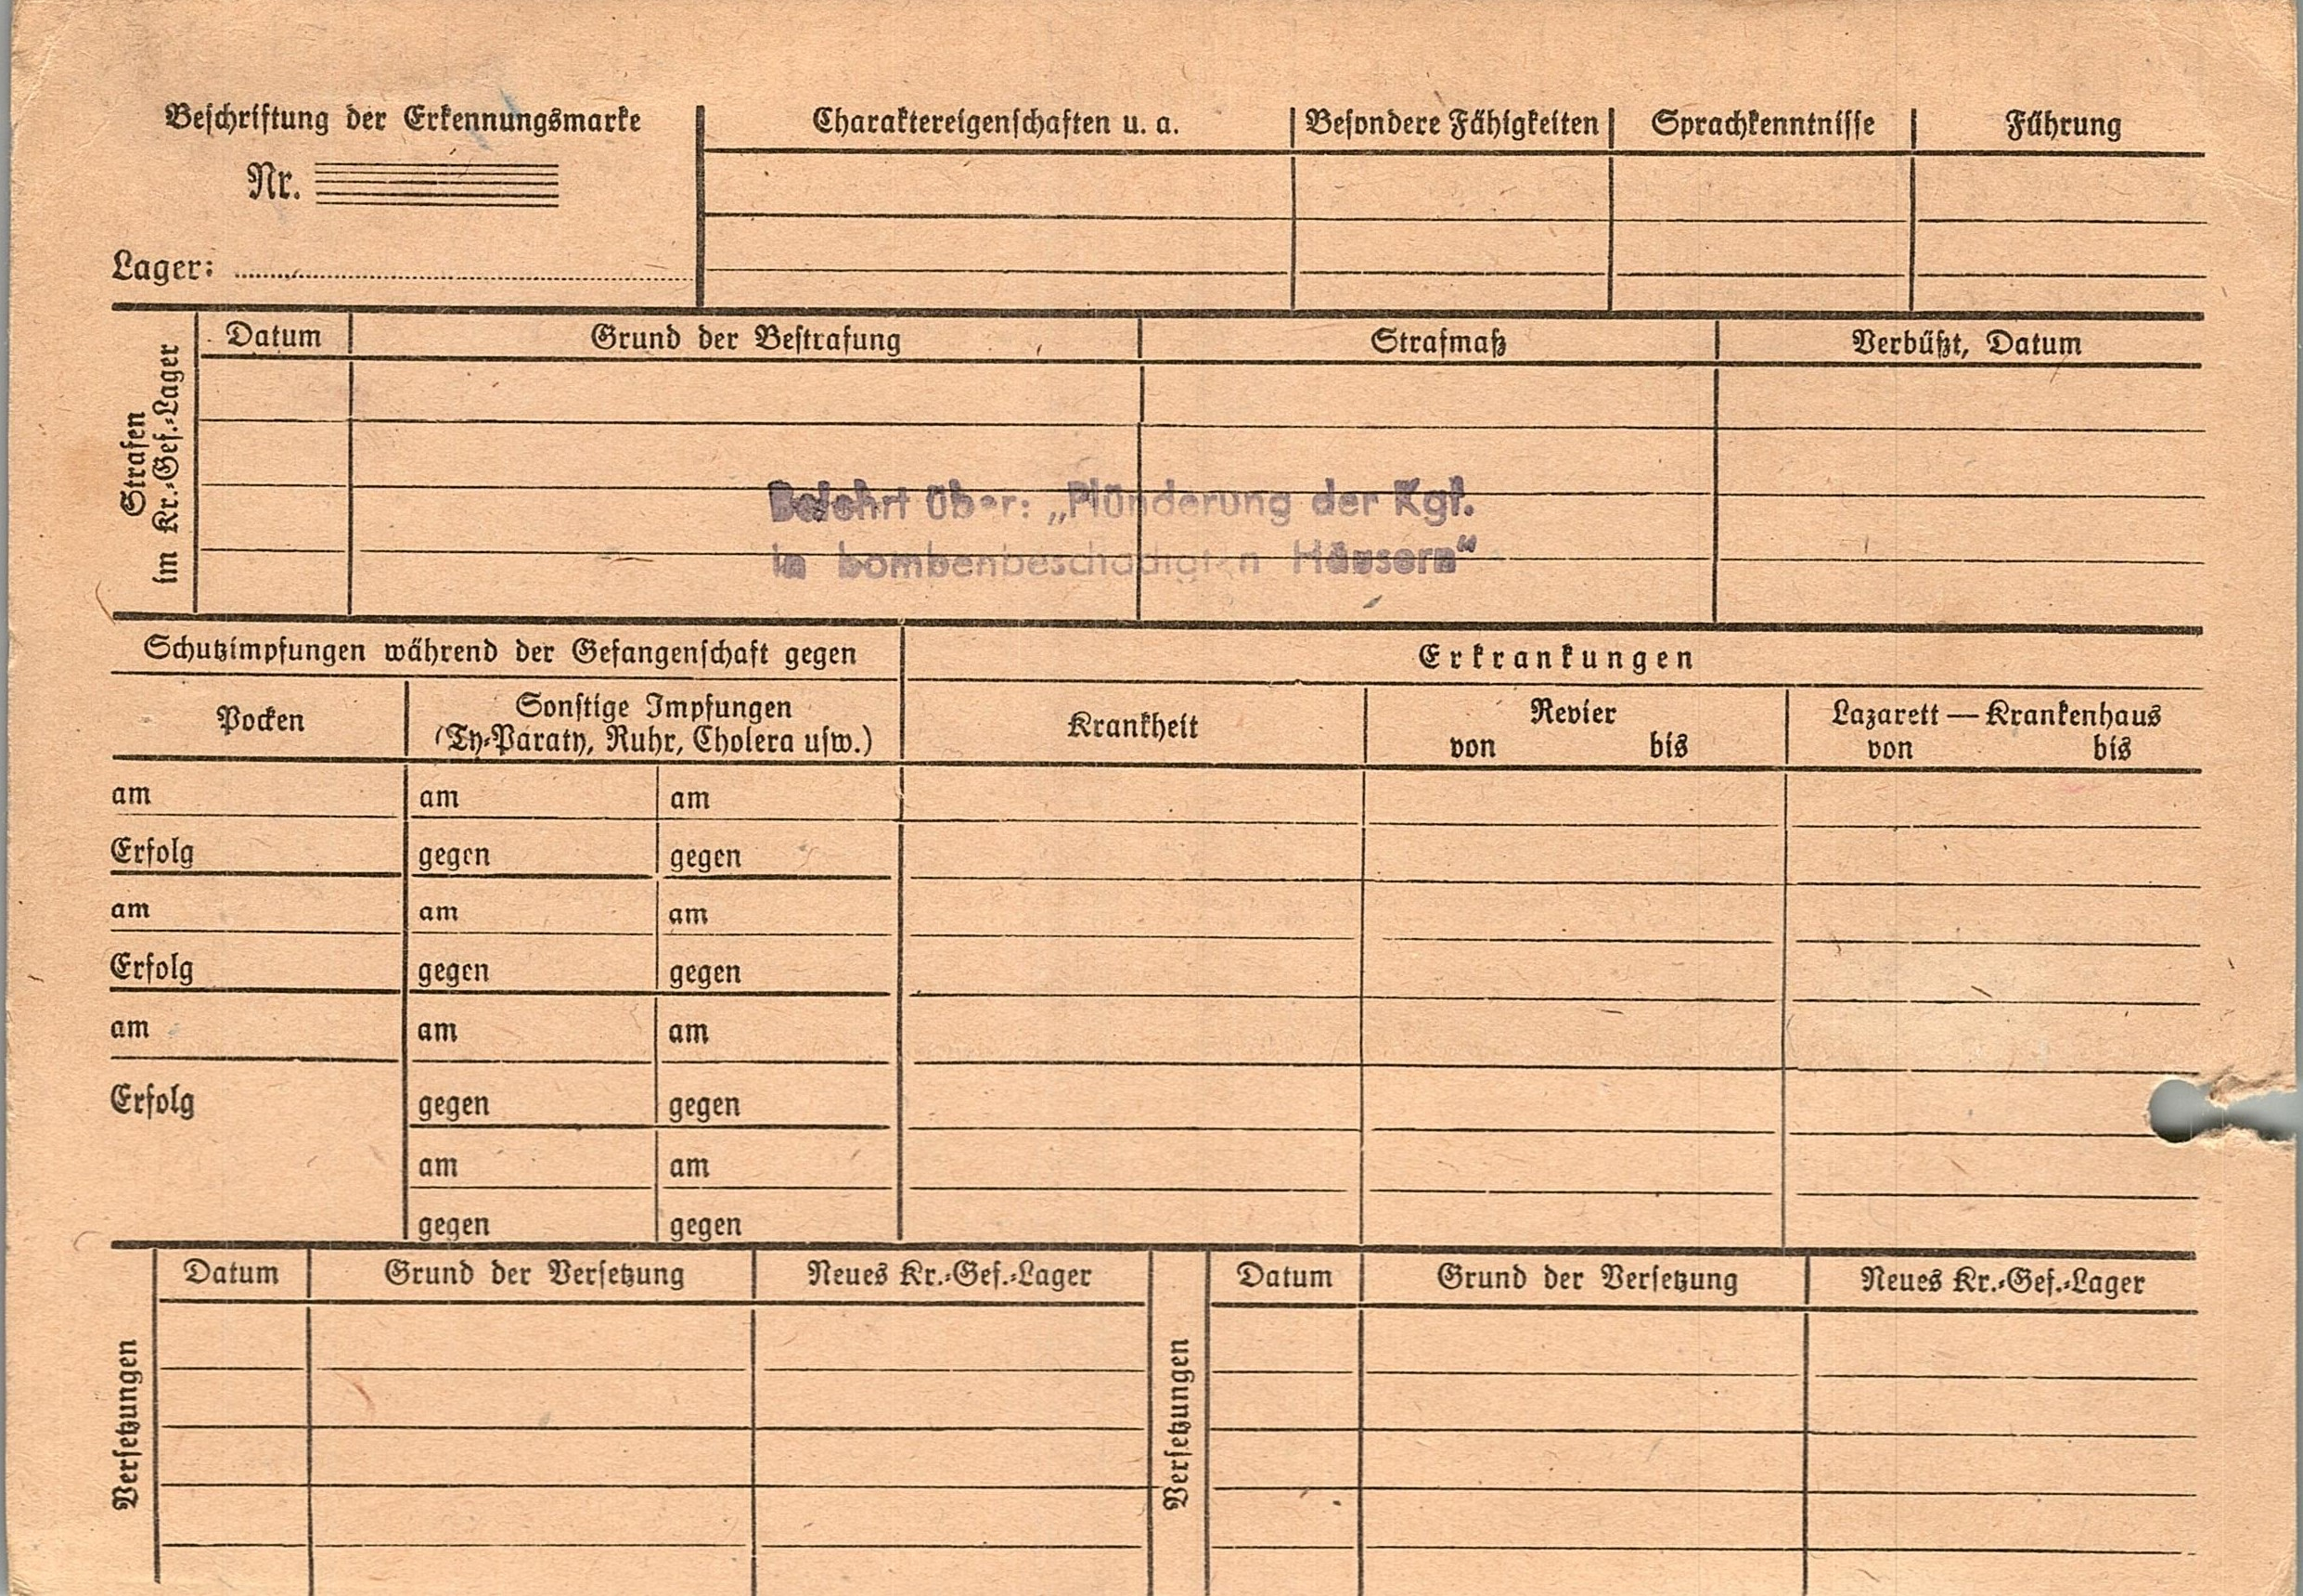 Beschriftung der Erkennungsmarke
Nr.
Lager:
Charaktereigenschaften u. a.
Besondere Fähigkeiten
Sprachkenntnisse
Führung
Strafen
im Kr.-Gef.-Lager
Datum
Grund der Bestrafung
Strafmaß
Verbüßt, Datum
Belehrt über: „Plünderung der Kgf.
in bombenbeschädigten Häusern“
Schutzimpfungen während der Gefangenschaft gegen
Erkrankungen
Pocken
Sonstige Impfungen
(Ty-Paraty, Ruhr, Cholera usw.)
Krankheit
Revier
von bis
Lazarett — Krankenhaus
von bis
am am am
Erfolg gegen gegen
am am am
Erfolg gegen gegen
am am am
Erfolg gegen gegen
am am
gegen gegen
Versetzungen
Datum
Grund der Versetzung
Neues Kr.-Gef.-Lager
Versetzungen
Datum
Grund der Versetzung
Neues Kr.-Gef.-Lager